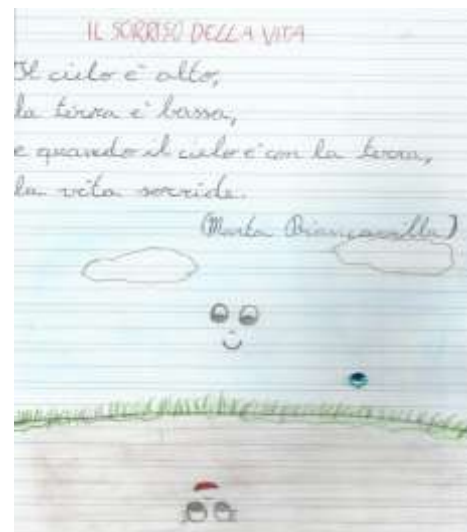 IL SORRISO DELLA VITA
Il cielo è alto,
la terra è bassa,
e quando il cielo è con la terra,
la vita sorride.
(Marta